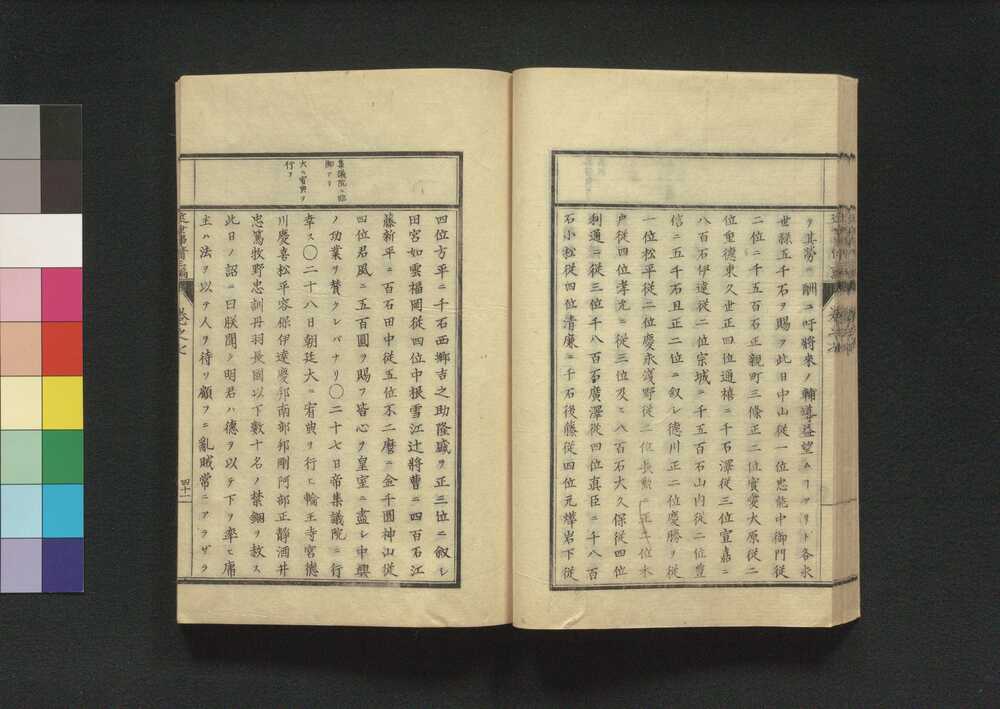 ヲ其勞ニ酬ユ吁將來ノ輔導益望ムコアリト各永
世祿五千石ヲ賜フ此日中山從一位忠能中御門從
二位ニ千五百石正親町三條正二位實愛大原從二
位重德東久世正四位通禧ニ千石澤從三位宣嘉ニ
八百石伊達從二位宗城ニ千五百石山內從二位豊
信ニ五千石且正二位ニ叙シ德川正二位慶勝ヲ從
一位松平從二位慶永淺野從二位長勳ニ正二位木
戶從四位孝允ニ從三位及ヒ八百石大久保從四位
利通ニ從三位千八百石廣澤從四位真臣ニ千八百
石小松從四位清廉ニ千石後藤從四位元燁岩下從
四位方平ニ千石西鄉吉之助隆盛ヲ正三位ニ叙シ
田宮如雲福岡從四位中根雪江辻將曹ニ四百石江
藤新平ニ百石田中從五位不二麿ニ金千圓神山從
四位君風ニ五百圓ヲ賜フ皆心ヲ皇室ニ盡シ中興
ノ功業ヲ贊クレバナリ〇二十七日帝集議院ニ行
幸ス〇二十八日朝廷大ニ宥典ヲ行ヒ輪王寺宮德
川慶喜松平容保伊達慶邦南部利剛阿部正靜酒井
忠篤牧野忠訓丹羽長國以下數十名ノ禁錮ヲ赦ス
此日ノ詔ニ曰朕聞ク明君ハ德ヲ以テ下ヲ率ヒ庸
主ハ法ヲ以テ人ヲ待ツ顧フニ亂賊常ニアラザラ
集議院ニ臨
御アリ
大ニ宥典ヲ
行フ
卷之七
四十二